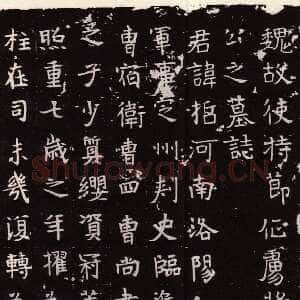 魏故使持節征虜將
公之墓誌
君諱河南洛陽
軍事之州刺史臨
曹宿衛曹四曹尚
之子少纓資冠
照重七歲之年擢
柱在司未幾復轉
Shufawang.CN